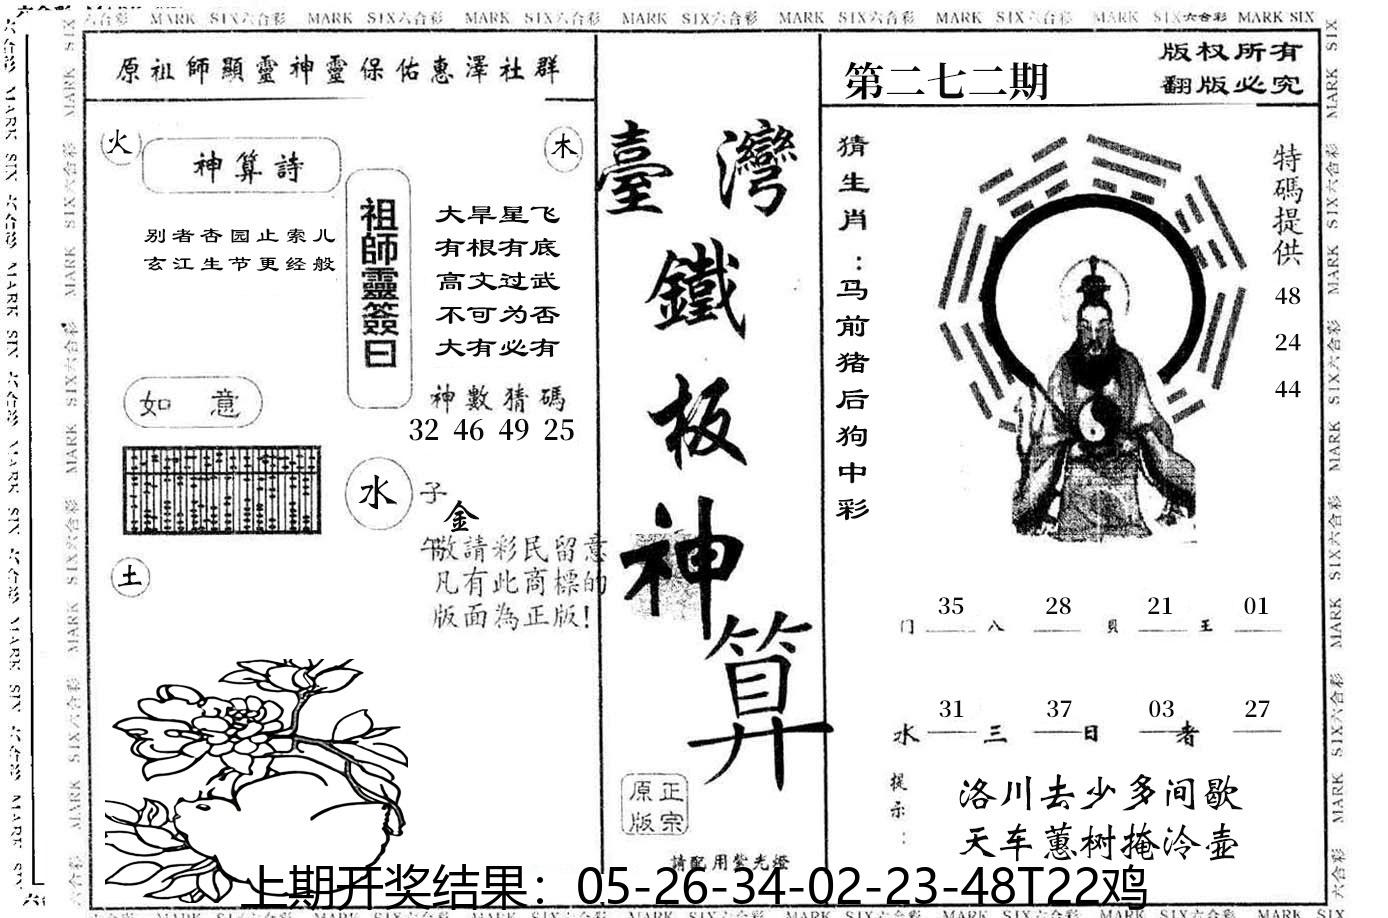 MARK SIX六合彩 MARK SIX六合彩 MARK SIX六合彩 MARK SIX六合彩 MARK SIX六合彩 MARK SIX六合彩 MARK SIX六合彩 MARK SIX
原祖師顯靈神靈保佑惠澤社群
火
木
神算詩
别者杏园止索儿
玄江生节更经般
祖師靈簽曰
大旱星飞
有根有底
高文过武
不可为否
大有必有
神數猜碼
32 46 49 25
如 意
水
子
金
午
敬請彩民留意
凡有此商標的
版面為正版!
土
臺灣
鐵板神算
原正
版宗
請配用紫光燈
第二七二期
版权所有
翻版必究
猜生肖:马前猪后狗中彩
特碼提供
48
24
44
35 28 21 01
门 八 貝 王
31 37 03 27
水 三 日 者
提示:
洛川去少多间歇
天车蕙树掩泠壶
上期开奖结果：05-26-34-02-23-48T22鸡